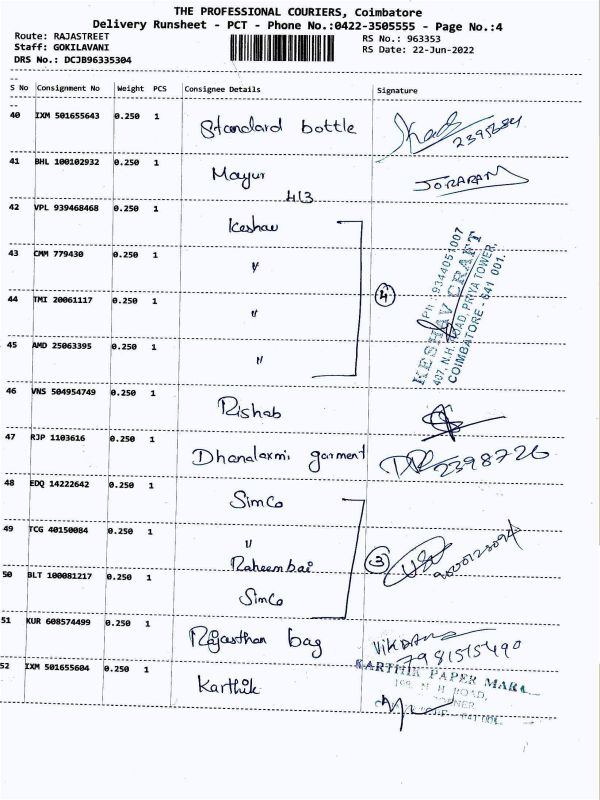 THE PROFESSIONAL COURIERS, Coimbatore
Delivery Runsheet - PCT - Phone No.:0422-3505555 - Page No.:4
Route: RAJASTREET
Staff: GOKILAVANI
DRS No.: DCJB96335304
RS No.: 963353
RS Date: 22-Jun-2022
S No Consignment No Weight PCS Consignee Details Signature
40 IXM 501655643 0.250 1 Standard bottle 2395684
41 BHL 100102932 0.250 1 Mayur JORARAM
413
42 VPL 939468468 0.250 1 Keshav
43 CMM 779430 0.250 1 "
44 TMI 20061117 0.250 1 " 4
45 AMD 25063395 0.250 1 "
Ph : 9344051007
KESHAV CRAFT
407, N.H. ROAD, PRIYA TOWER,
COIMBATORE - 641 001.
46 VNS 504954749 0.250 1 Rishab
47 RJP 1103616 0.250 1 Dhanalaxmi garment 2398726
48 EDQ 14222642 0.250 1 SimCo
49 TCG 40150084 0.250 1 "
Raheembai 3
50 BLT 100081217 0.250 1 SimCo
51 KUR 608574499 0.250 1 Rajasthan bag
7981515490
52 IXM 501655604 0.250 1 Karthik
KARTHIK PAPER MART
N H ROAD,
CORNER